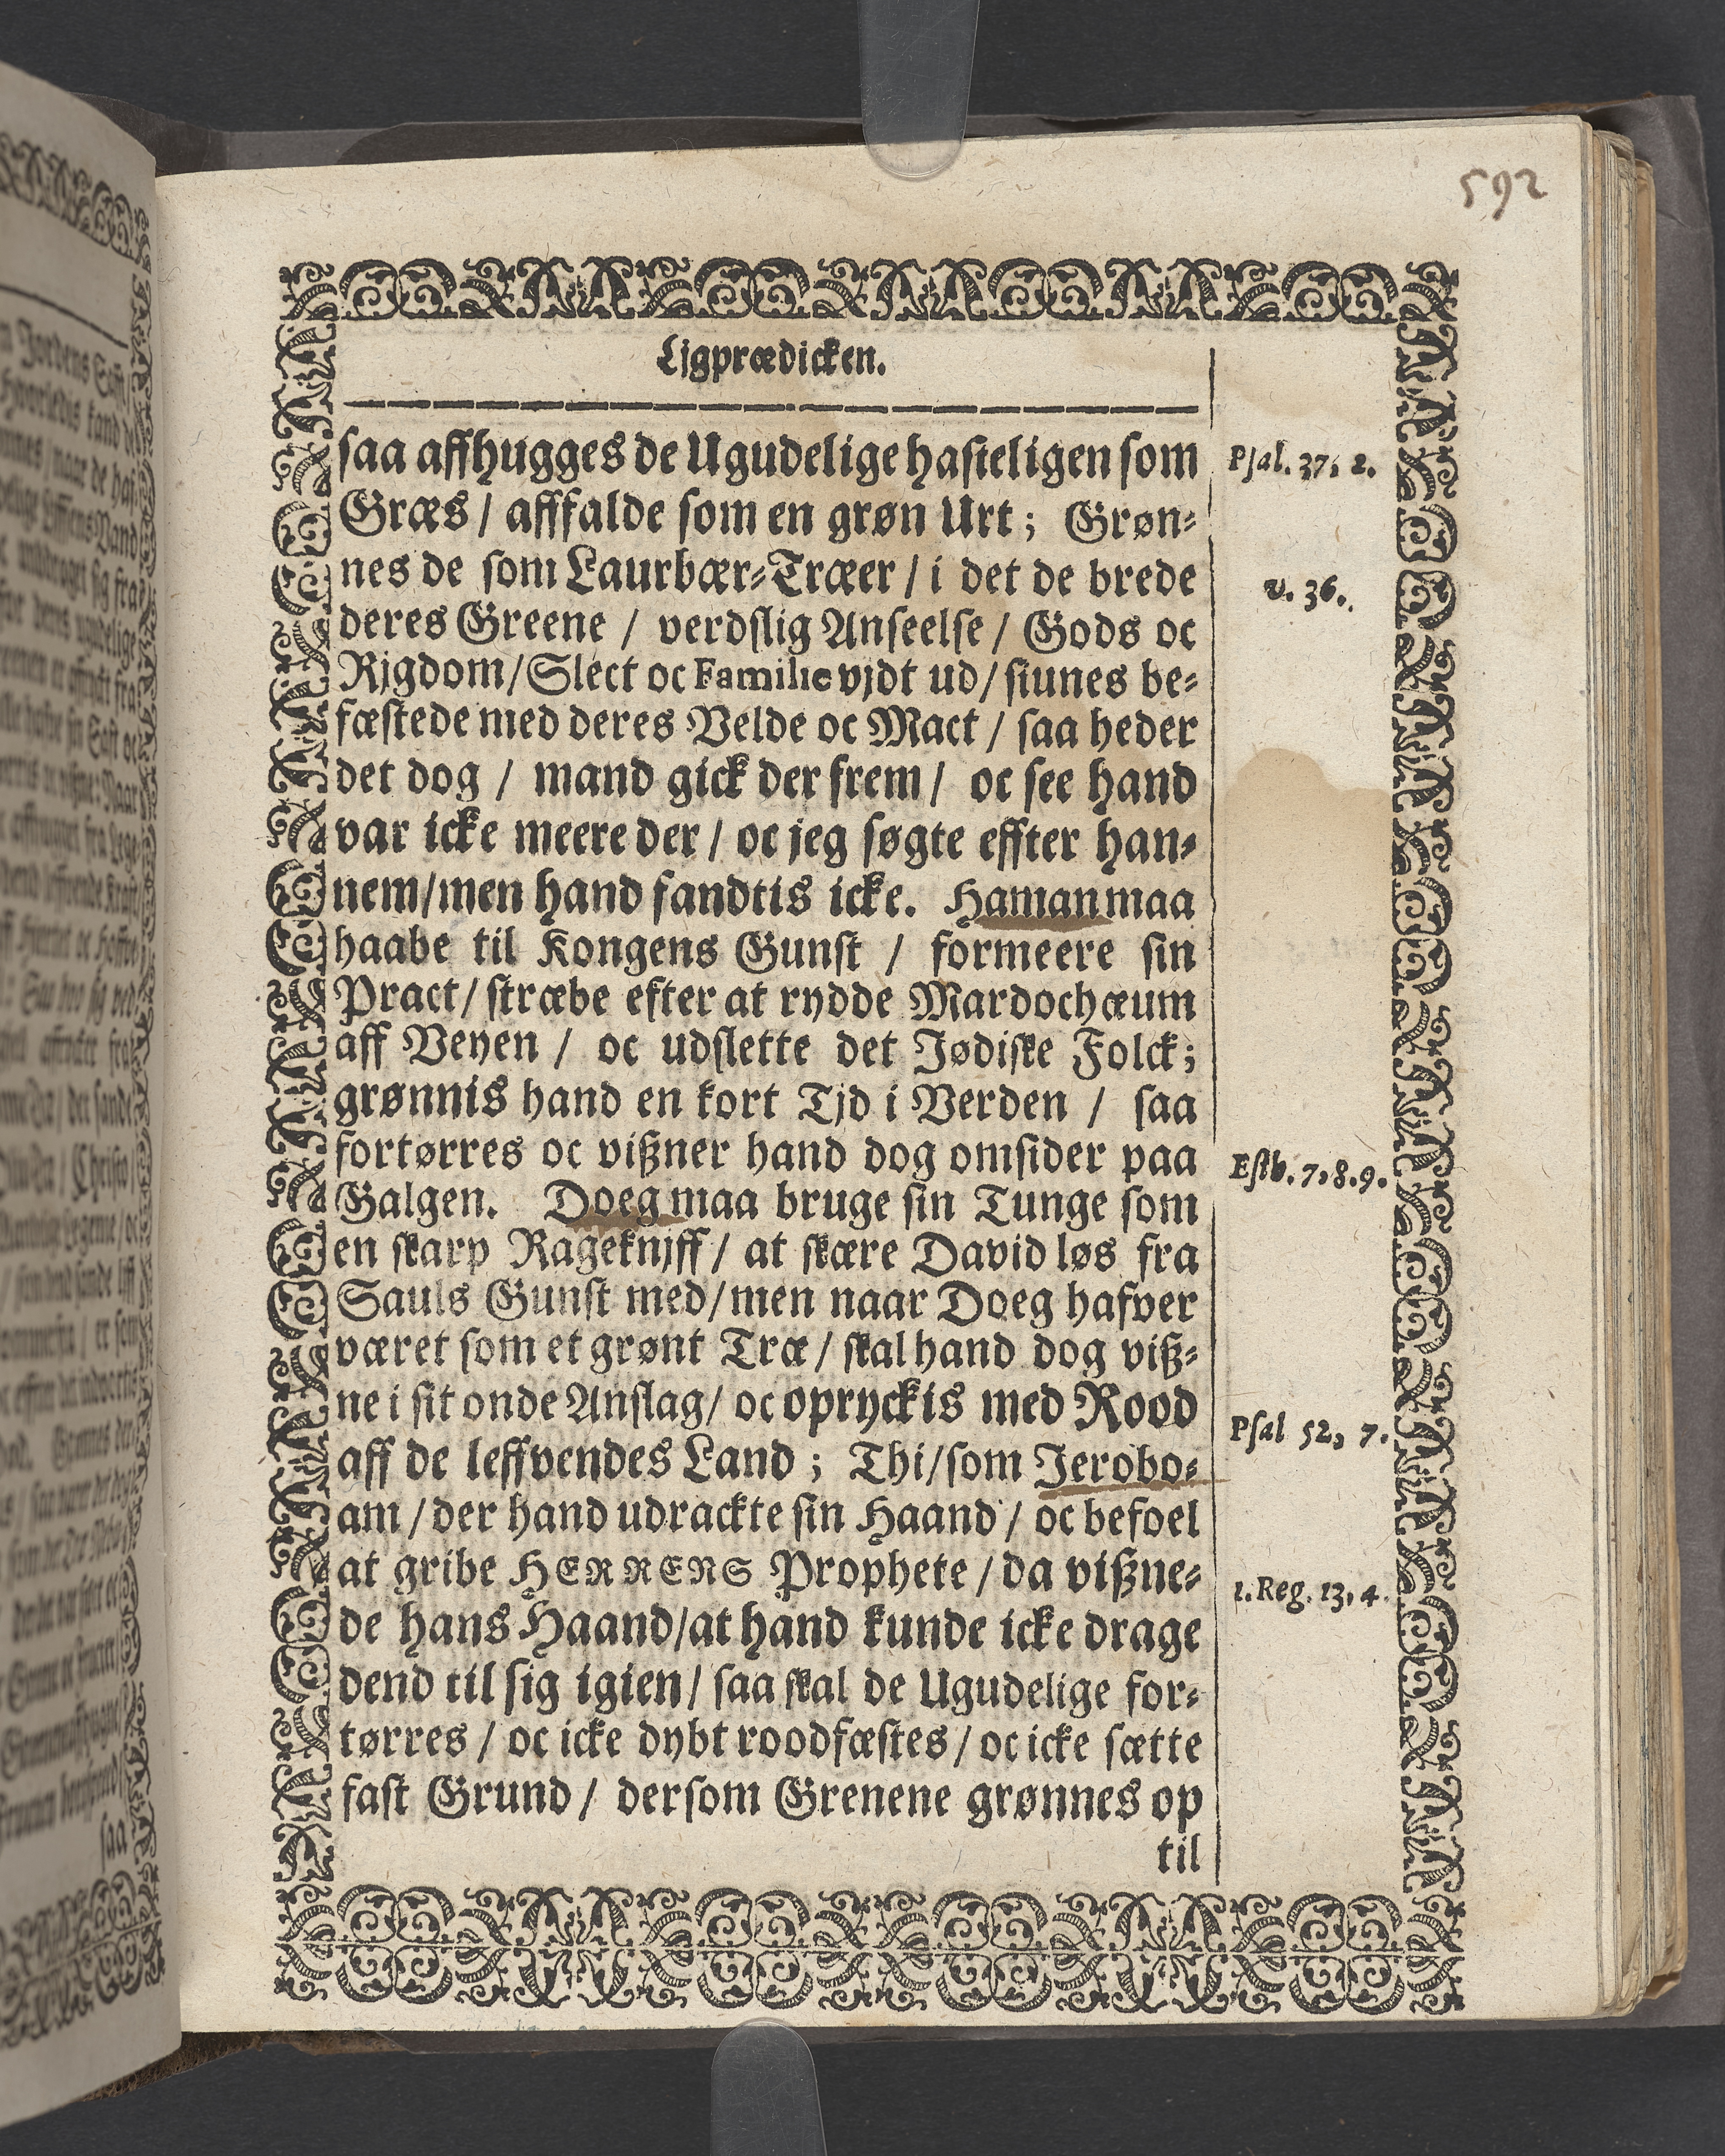 592
Ljgprædicken.
saa affhugges de Ugudelige hasteligen som
Græs / afffalde som en grøn Urt; Grøn-
nes de som Laurbær-Træer / i det de brede
deres Greene / verdslig Anseelse / Gods oc
Rjgdom/Slect oc Familie vjdt ud/ siunes be-
fæstede med deres Velde oc Mact / saa heder
det dog / mand gick der frem / oc see hand
var icke meere der / oc jeg søgte effter han-
nem/men hand fandtis icke. Haman maa
haabe til Kongens Gunst / formeere sin
Pract/ stræbe efter at rydde Mardochæum
aff Veyen / oc udslette det Jødiske Folck;
grønnis hand en kort Tjd i Verden / saa
fortørres oc vißner hand dog omsider paa
Galgen. Doeg maa bruge sin Tunge som
en skarp Rageknjff/ at skære David løs fra
Sauls Gunst med/men naar Doeg hafver
været som et grønt Træ/ skal hand dog viß-
ne i sit onde Anslag/ oc opryckis med Rood
aff de leffvendes Land ; Thi/som Jerobo-
am / der hand udrackte sin Haand / oc befoel
at gribe HERRENS Prophete / da vißne-
de hans Haand/at hand kunde icke drage
dend til sig igien/ saa skal de Ugudelige for-
tørres / oc icke dybt roodfæstes/ oc icke sætte
fast Grund / dersom Grenene grønnes op
til
Psal. 37, 2.
v. 36.
Esth. 7, 8. 9.
Psal 52, 7.
1. Reg. 13, 4.
saa